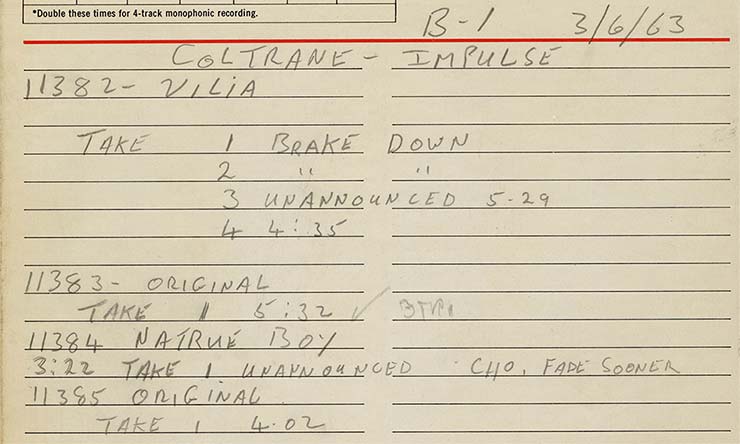 *Double these times for 4-track monophonic recording.
B-1 3/6/63
COLTRANE - IMPULSE
11382- VILIA
TAKE 1 BRAKE DOWN
2 " "
3 UNANNOUNCED 5-29
4 4:35
11383- ORIGINAL
TAKE 1 5:32 ✓
11384 NATRUE BOY
3:22 TAKE 1 UNANNOUNCED CHO, FADE SOONER
11385 ORIGINAL
TAKE 1 4.02